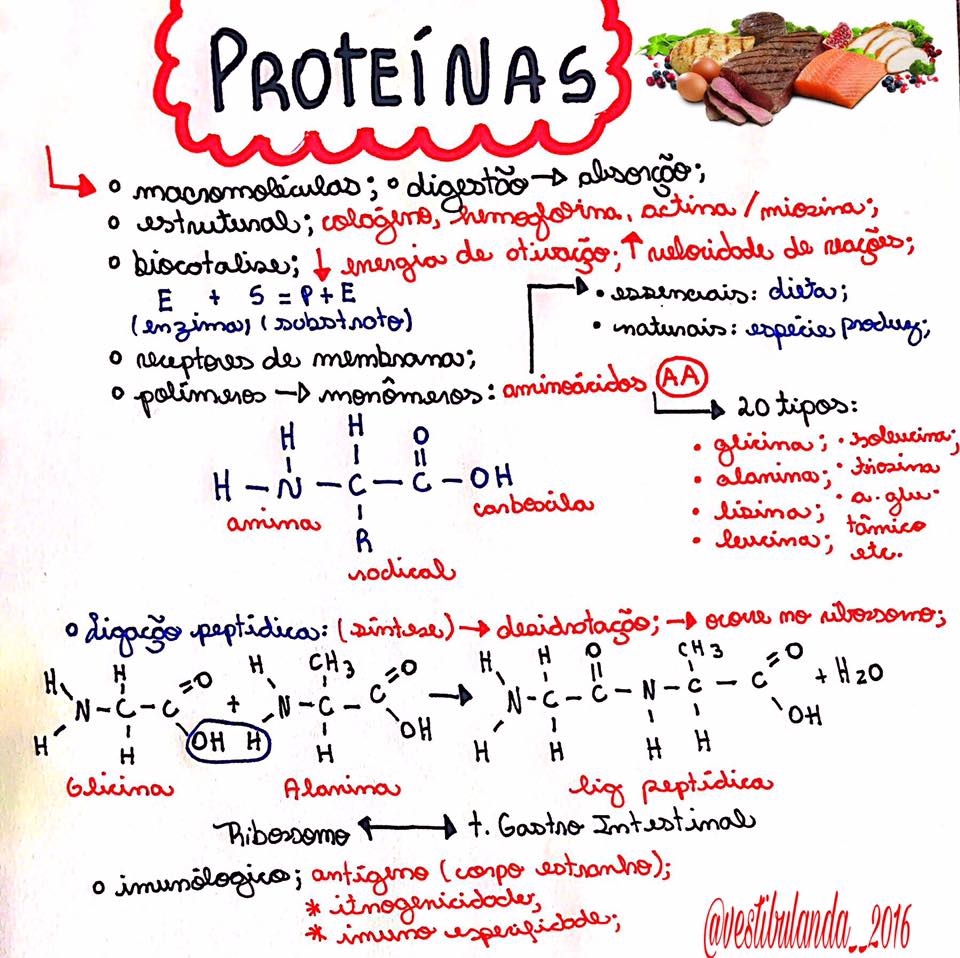 PROTEÍNAS
° macromoléculas; ° digestão → absorção;
° estrutural; colágeno, hemoglobina, actina/miozina;
° biocatalise; ↓ energia de ativação; ↑ velocidade de reações;
E + S = P + E
(enzima) (substrato)
• essenciais: dieta;
• naturais: espécie produz;
° receptores de membrana;
° polímeros → monômeros: aminoácidos AA
→ 20 tipos:
• glicina; • isoleucina;
• alanina; • tirozina
• lisina; • a. glu-
• leucina; tâmico
etc.
H O
H
H – N – C – C – OH
amina carboxila
R
radical
° Ligação peptídica: (síntese) → desidratação; → ocorre no ribossomo;
H H O H CH3 O H H O CH3 O
N – C – C + N – C – C → N – C – C – N – C – C + H2O
H H OH H H OH H H H H OH
Glicina Alanina lig peptídica
Ribossomo ↔ t. Gastro Intestinal
° imunólogico; antígeno (corpo estranho);
* itnogenicidade;
* imuno especifidade;
@vestibulanda__2016